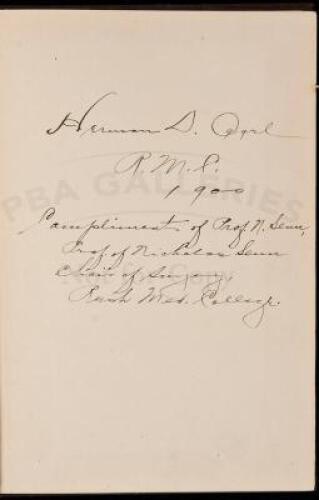 Herman D. 
R. M. C.
1900
Compliments of Prof. N. Senn,
Prof. of Nicholas Senn
Chair of Surgery
Rush Med. College.
PBA GALLERIES